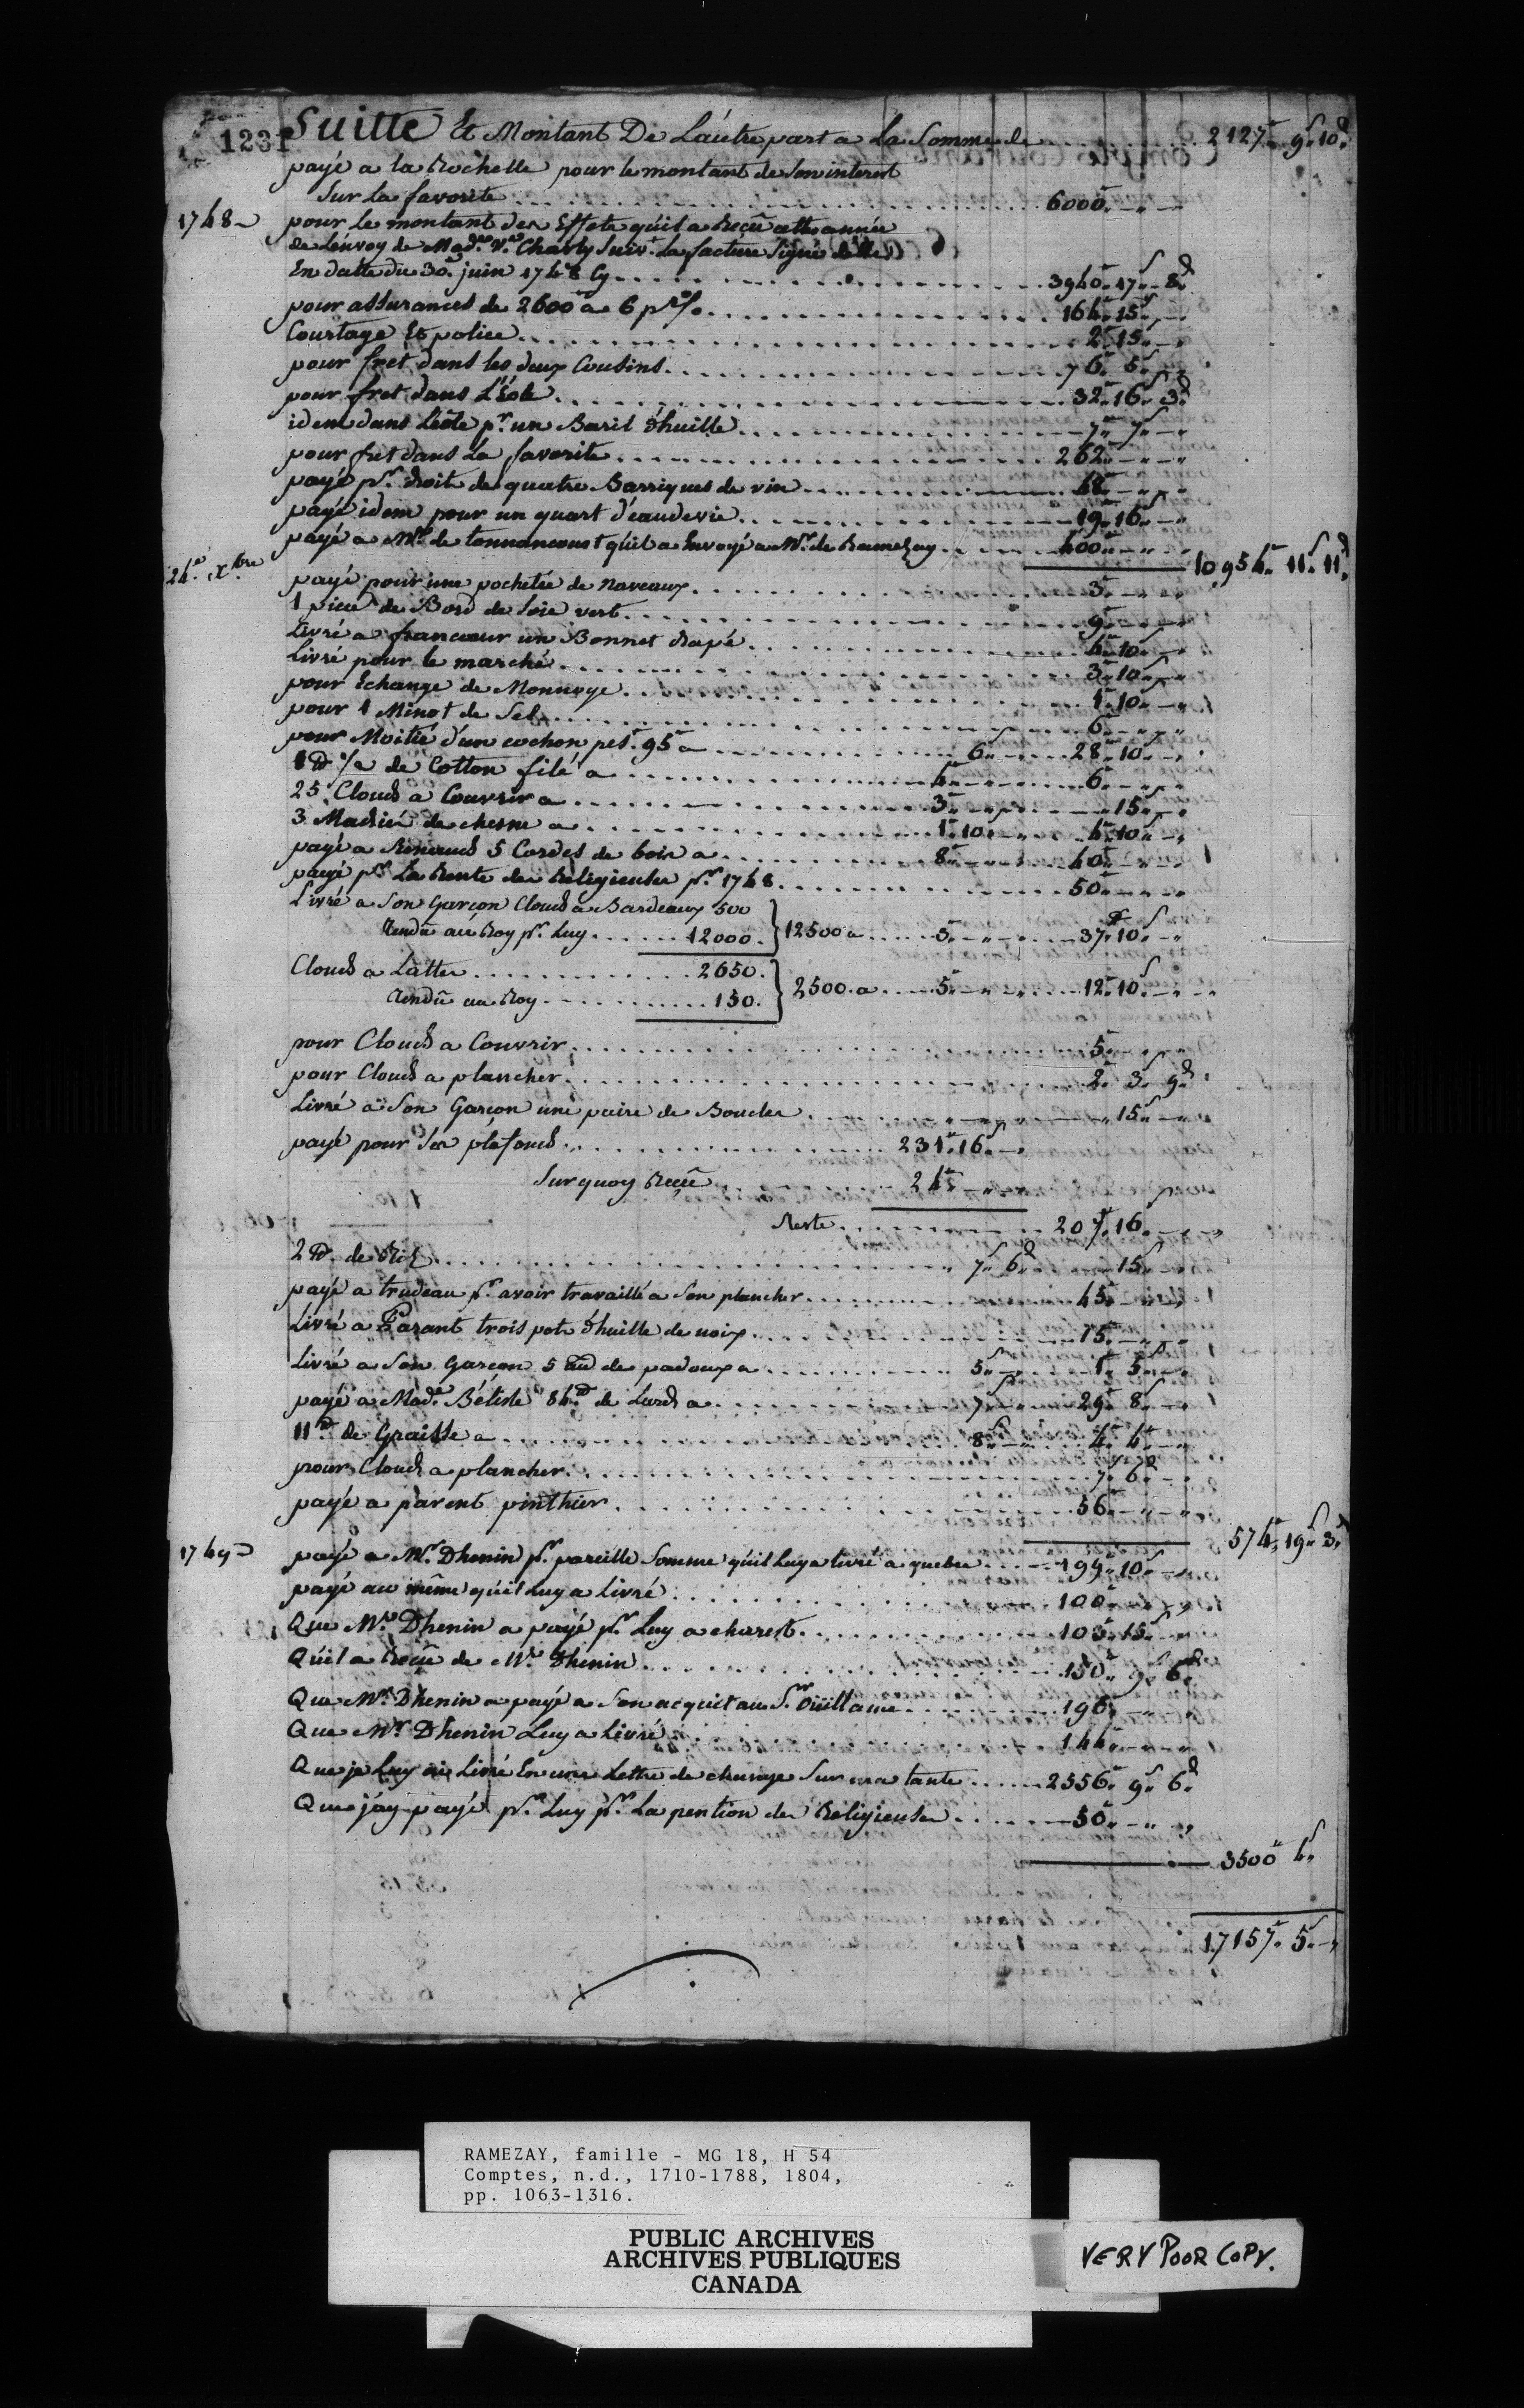 1231 Suitte Et Montant De Láutre part a La Somme de ........ 2127ᵗᵗ 9ˢ 10ᵈ
payé a la Rochelle pour le montant de Son interest
Sur La favorite ........ 6000 " "
1748 pour le montant des Effets qúil a Reçû cette année
de Lénvoy de Madᵉ Vᵛᵉ Charly Suivᵗ La facture Signé delle
En datte du 30ᵉ juin 1748 Cy ........ 3940. 17ˢ 8ᵈ
pour assurances de 2600ᵗᵗ a 6 pʳ % ........ 164. 15
Courtage Et police ........ 2. 15
pour fret dans les deux Cousins ........ 76. 5
pour fret dans L'Éole ........ 32. 16. 3ᵈ
idem dans Léole pʳ un Baril d'huille ........ 7. 7
pour fret dans La favorite ........ 262
payé pʳ droit de quatre Barriques de vin ........ 48
payé idem pour un quart d'éaudevie ........ 19. 16
payé a Mʳ de tonnancourt qúil a Envoyé a Mʳ de Ramezay ........ 400
10,954. 11ˢ 11ᵈ
24ᵉ Xbre payé pour une pochetée de naveaux ........ 3
1 piece de Bord de Soie vert ........ 9
Livré a francœur un Bonnet drapé ........ 4. 10
Livré pour le marché ........ 3. 10
pour Echange de Monnoye ........ 1. 10
pour 1 Minot de Sel ........ 6
pour Moitié d'un cochon pesᵗ 95 a ........ 6 .... 28. 10
1 ℔ ½ de Cotton filé a ........ 4 .... 6
25 Clouds a Couvrir a ........ 3 .... 15
3 Madrié de chesne a ........ 1. 10 .... 4. 10
payé a Renaud 5 Cordes de bois a ........ 8 .... 40
payé pʳ La Rente des Religieuses pʳ 1748 ........ 50
Livré a Son Garçon Clouds a Bardeaux 500
Rendû au Roy pʳ Luy ...... 12000. } 12500 a ...... 3 .... 37. 10ˢ
Clouds a Latter ........ 2650.
Rendû au Roy ........ 150. } 2500. a .... 5 .... 12. 10ˢ
pour Clouds a Couvrir ........ 5
pour Clouds a plancher ........ 2. 3. 9ᵈ
Livré a Son Garçon une paire de Boucles ........ 15
payé pour Ses plafonds ........ 231. 16
Surquoy Reçû ........ 24
Reste ........ 207. 16
2 ℔ de Riz ........ 7ˢ 6ᵈ .... 15ˢ
payé a trudeau pʳ avoir travaillé a Son plancher ........ 45
Livré a Parant trois pots d'huille de noix ........ 15
Livré a Son Garçon 5 au de padoux a ........ 5 .... 1. 5
payé a Madᵉ Bélisle 84 ℔ de Lard a ........ 7 .... 29. 8
11 ℔ de Graisse a ........ 8ˢ .... 4. 4
pour Clouds a plancher ........ 7ˢ 6ᵈ
payé a parent pinthier ........ 56
574. 19ˢ 3ᵈ
1749 payé a Mʳ Dhenin pʳ pareille Somme qúil Luy a livré a quebec .... 199. 10ˢ
payé au même qúil Luy a Livré ........ 100
Que Mʳ Dhenin a payé pʳ Luy a charest ........ 103. 15
Qúil a Reçû de Mʳ Dhenin ........ 150. 9ˢ 6ᵈ
Que Mʳ Dhenin a payé a Son acquit au Sʳ oüillame ........ 196
Que Mʳ Dhenin Luy a Livré ........ 144
Que je Luy ai Livré En une Lettre de change Sur ma tante ...... 2556. 9ˢ 6ᵈ
Que j'ay payé pʳ Luy pʳ La pention des Religieuses ...... 50
3500 4ˢ
17157. 5ˢ
RAMEZAY, famille - MG 18, H 54
Comptes, n.d., 1710-1788, 1804,
pp. 1063-1316.
PUBLIC ARCHIVES
ARCHIVES PUBLIQUES
CANADA
VERY POOR COPY.